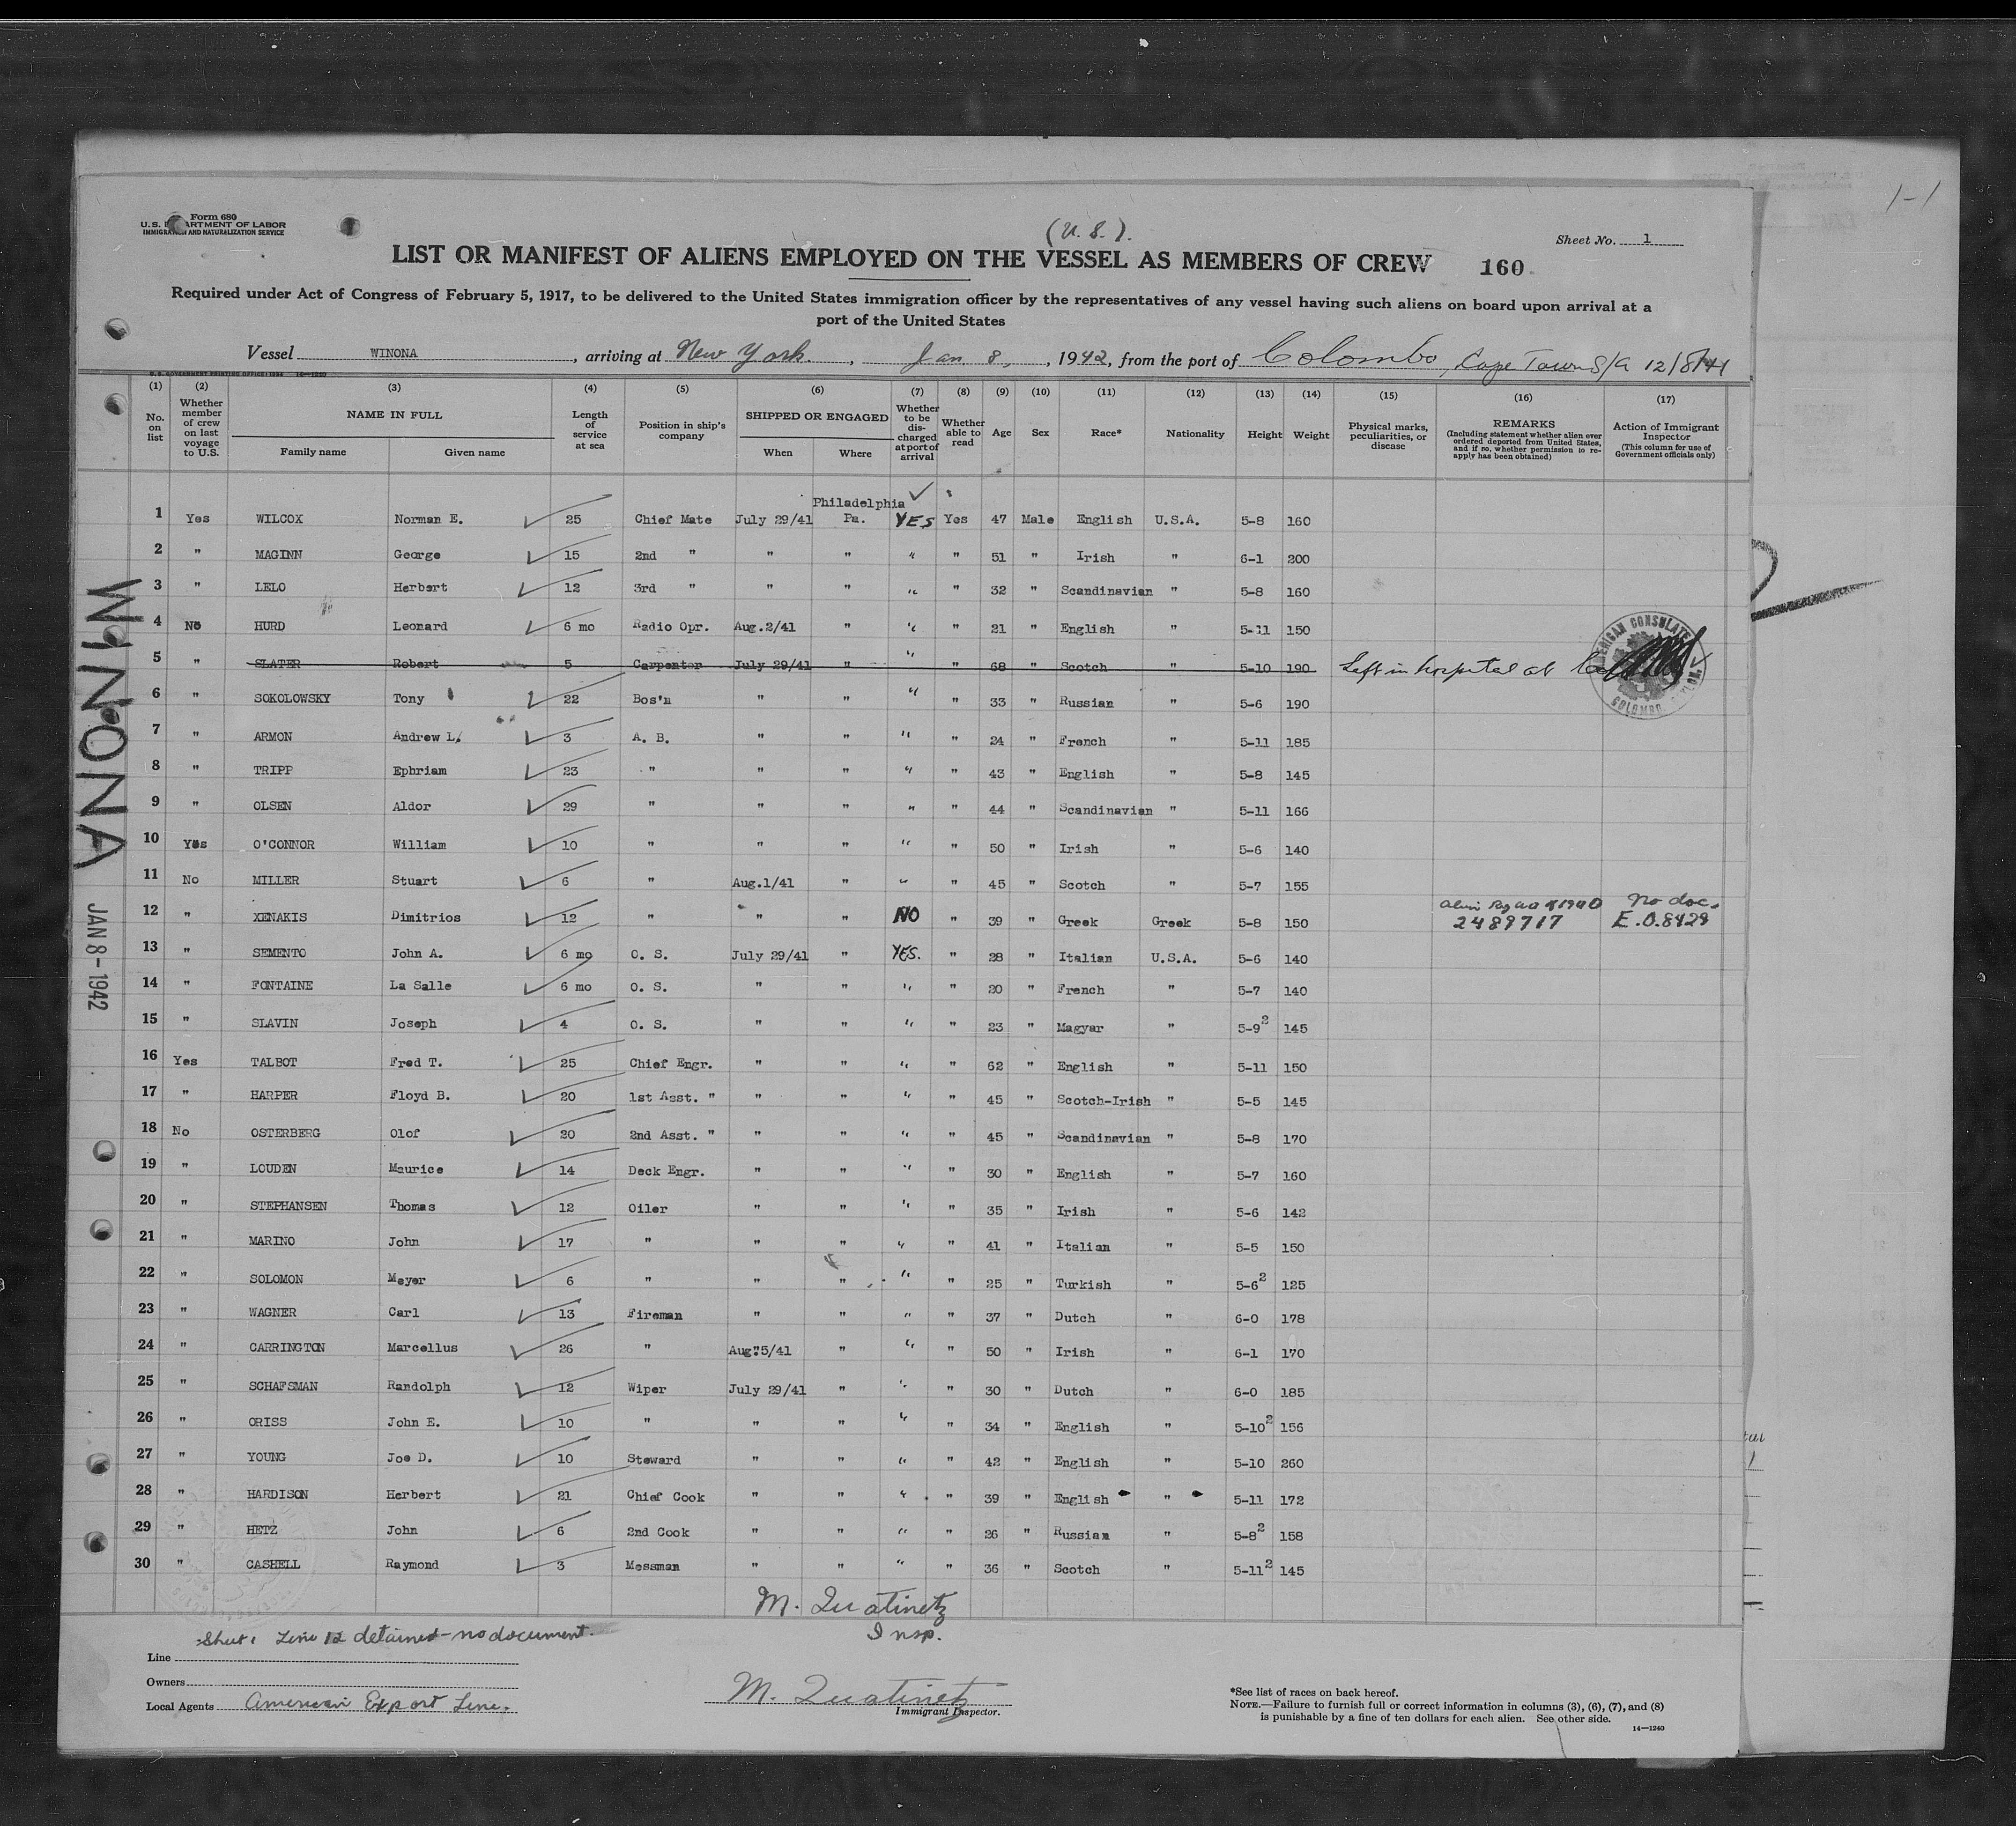 1-1
Form 680
U. S. DEPARTMENT OF LABOR
IMMIGRATION AND NATURALIZATION SERVICE
(U. S.).
Sheet No. 1
LIST OR MANIFEST OF ALIENS EMPLOYED ON THE VESSEL AS MEMBERS OF CREW 160
Required under Act of Congress of February 5, 1917, to be delivered to the United States immigration officer by the representatives of any vessel having such aliens on board upon arrival at a
port of the United States
Vessel WINONA, arriving at New York, Jan. 8, 1942, from the port of Colombo, Cape Town S/A 12/8/41
(1) No. on list (2) Whether member of crew on last voyage to U.S. (3) NAME IN FULL Family name Given name (4) Length of service at sea (5) Position in ship's company (6) SHIPPED OR ENGAGED When Where (7) Whether to be discharged at port of arrival (8) Whether able to read (9) Age (10) Sex (11) Race* (12) Nationality (13) Height (14) Weight (15) Physical marks, peculiarities, or disease (16) REMARKS (Including statement whether alien ever ordered deported from United States, and if so, whether permission to re-apply has been obtained) (17) Action of Immigrant Inspector (This column for use of Government officials only)
1 Yes WILCOX Norman E. 25 Chief Mate July 29/41 Philadelphia Pa. YES Yes 47 Male English U.S.A. 5-8 160
2 " MAGINN George 15 2nd " " " " " 51 " Irish " 6-1 200
3 " LELO Herbert 12 3rd " " " " " 32 " Scandinavian " 5-8 160
4 No HURD Leonard 6 mo Radio Opr. Aug.2/41 " " " 21 " English " 5-11 150
5 " SLATER Robert 5 Carpenter July 29/41 " " " 68 " Scotch " 5-10 190 Left in hospital at
AMERICAN CONSULATE COLOMBO
6 " SOKOLOWSKY Tony 22 Bos'n " " " " 33 " Russian " 5-6 190
7 " ARMON Andrew L. 3 A. B. " " " " 24 " French " 5-11 185
8 " TRIPP Ephriam 23 " " " " " 43 " English " 5-8 145
9 " OLSEN Aldor 29 " " " " " 44 " Scandinavian " 5-11 166
10 Yes O'CONNOR William 10 " " " " " 50 " Irish " 5-6 140
11 No MILLER Stuart 6 " Aug.1/41 " " " 45 " Scotch " 5-7 155
12 " XENAKIS Dimitrios 12 " " " NO " 39 " Greek Greek 5-8 150 Alien Reg Act of 1940 2489717 No doc. E.O.8429
13 " SEMENTO John A. 6 mo O. S. July 29/41 " YES. " 28 " Italian U.S.A. 5-6 140
14 " FONTAINE La Salle 6 mo O. S. " " " " 20 " French " 5-7 140
15 " SLAVIN Joseph 4 O. S. " " " " 23 " Magyar " 5-9² 145
16 Yes TALBOT Fred T. 25 Chief Engr. " " " " 62 " English " 5-11 150
17 " HARPER Floyd B. 20 1st Asst. " " " " " 45 " Scotch-Irish " 5-5 145
18 No OSTERBERG Olof 20 2nd Asst. " " " " " 45 " Scandinavian " 5-8 170
19 " LOUDEN Maurice 14 Deck Engr. " " " " 30 " English " 5-7 160
20 " STEPHANSEN Thomas 12 Oiler " " " " 35 " Irish " 5-6 142
21 " MARINO John 17 " " " " " 41 " Italian " 5-5 150
22 " SOLOMON Meyer 6 " " " " " 25 " Turkish " 5-6² 125
23 " WAGNER Carl 13 Fireman " " " " 37 " Dutch " 6-0 178
24 " CARRINGTON Marcellus 26 " Aug.5/41 " " " 50 " Irish " 6-1 170
25 " SCHAFSMAN Randolph 12 Wiper July 29/41 " " " 30 " Dutch " 6-0 185
26 " ORISS John E. 10 " " " " " 34 " English " 5-10² 156
27 " YOUNG Joe D. 10 Steward " " " " 42 " English " 5-10 260
28 " HARDISON Herbert 21 Chief Cook " " " " 39 " English " 5-11 172
29 " HETZ John 6 2nd Cook " " " " 26 " Russian " 5-8² 158
30 " CASHELL Raymond 3 Messman " " " " 36 " Scotch " 5-11² 145
WINONA
JAN 8-1942
M. Quatinetz
Insp.
Sheet 1 Line 12 detained - no document.
Line
Owners
Local Agents American Export Line.
M. Quatinetz
Immigrant Inspector.
*See list of races on back hereof.
NOTE.—Failure to furnish full or correct information in columns (3), (6), (7), and (8)
is punishable by a fine of ten dollars for each alien. See other side.
14—1240